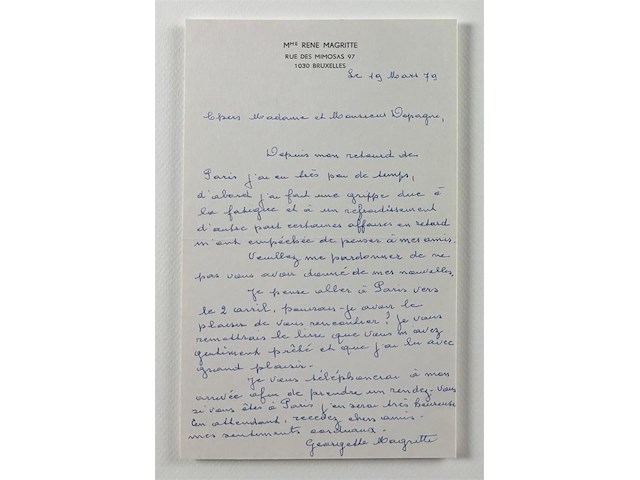 Mme RENE MAGRITTE
RUE DES MIMOSAS 97
1030 BRUXELLES
Le 19 Mars 79
Chers Madame et Monsieur Depagne,
Depuis mon retour de
Paris j'ai eu très peu de temps,
d'abord j'ai fait une grippe due à
la fatigue et à un refroidissement
d'autre part certaines affaires en retard
m'ont empêchée de penser à mes amis.
Veuillez me pardonner de ne
pas vous avoir donné de mes nouvelles.
Je pense aller à Paris vers
le 2 avril, pourrais-je avoir le
plaisir de vous rencontrer? Je vous
remettrais le livre que vous m'avez
gentiment prêté et que j'ai lu avec
grand plaisir.
Je vous téléphonerai à mon
arrivée afin de prendre un rendez-vous
si vous êtes à Paris j'en serai très heureuse
En attendant, recevez chers amis
mes sentiments cordiaux.
Georgette Magritte